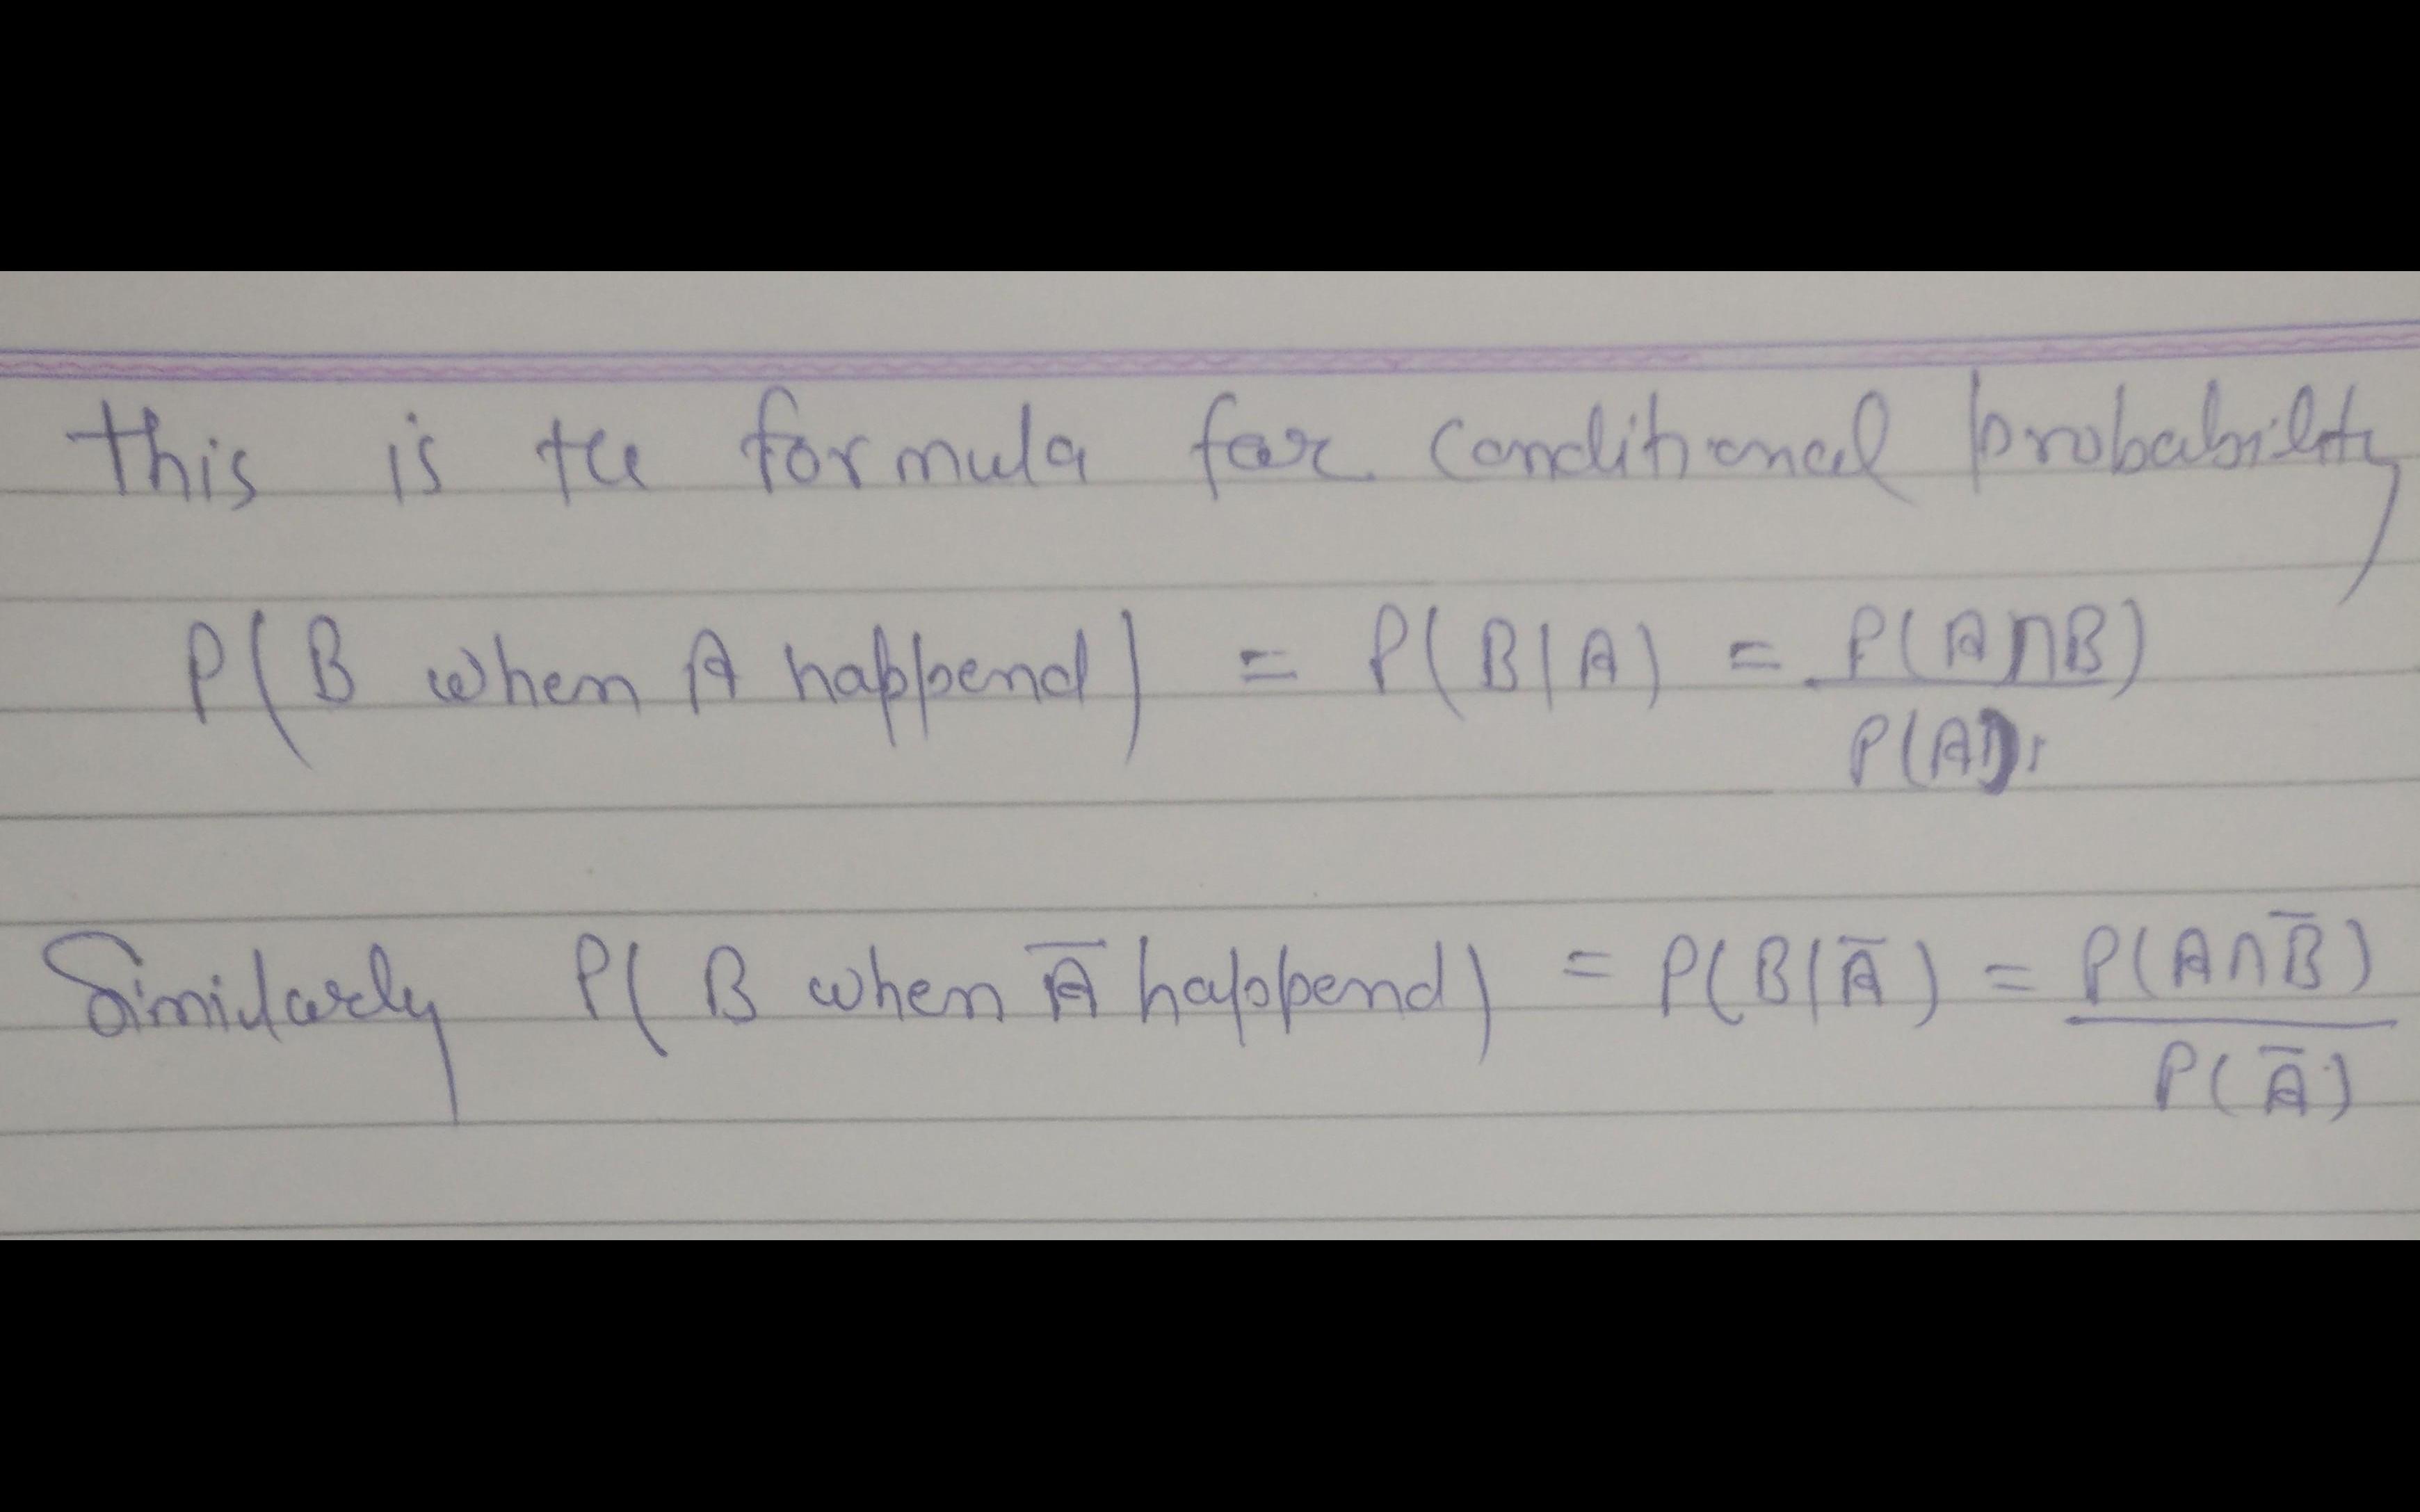 this is the formula for conditional probability
P(B when A happend) = P(B|A) = P(A∩B)
P(A)
Similarly P(B when A̅ happend) = P(B|A̅) = P(A∩B̅)
P(A̅)